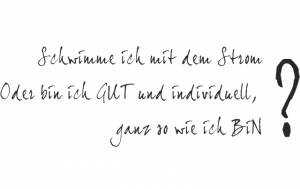 Schwimme ich mit dem Strom
Oder bin ich GUT und individuell,
ganz so wie ich BiN
?